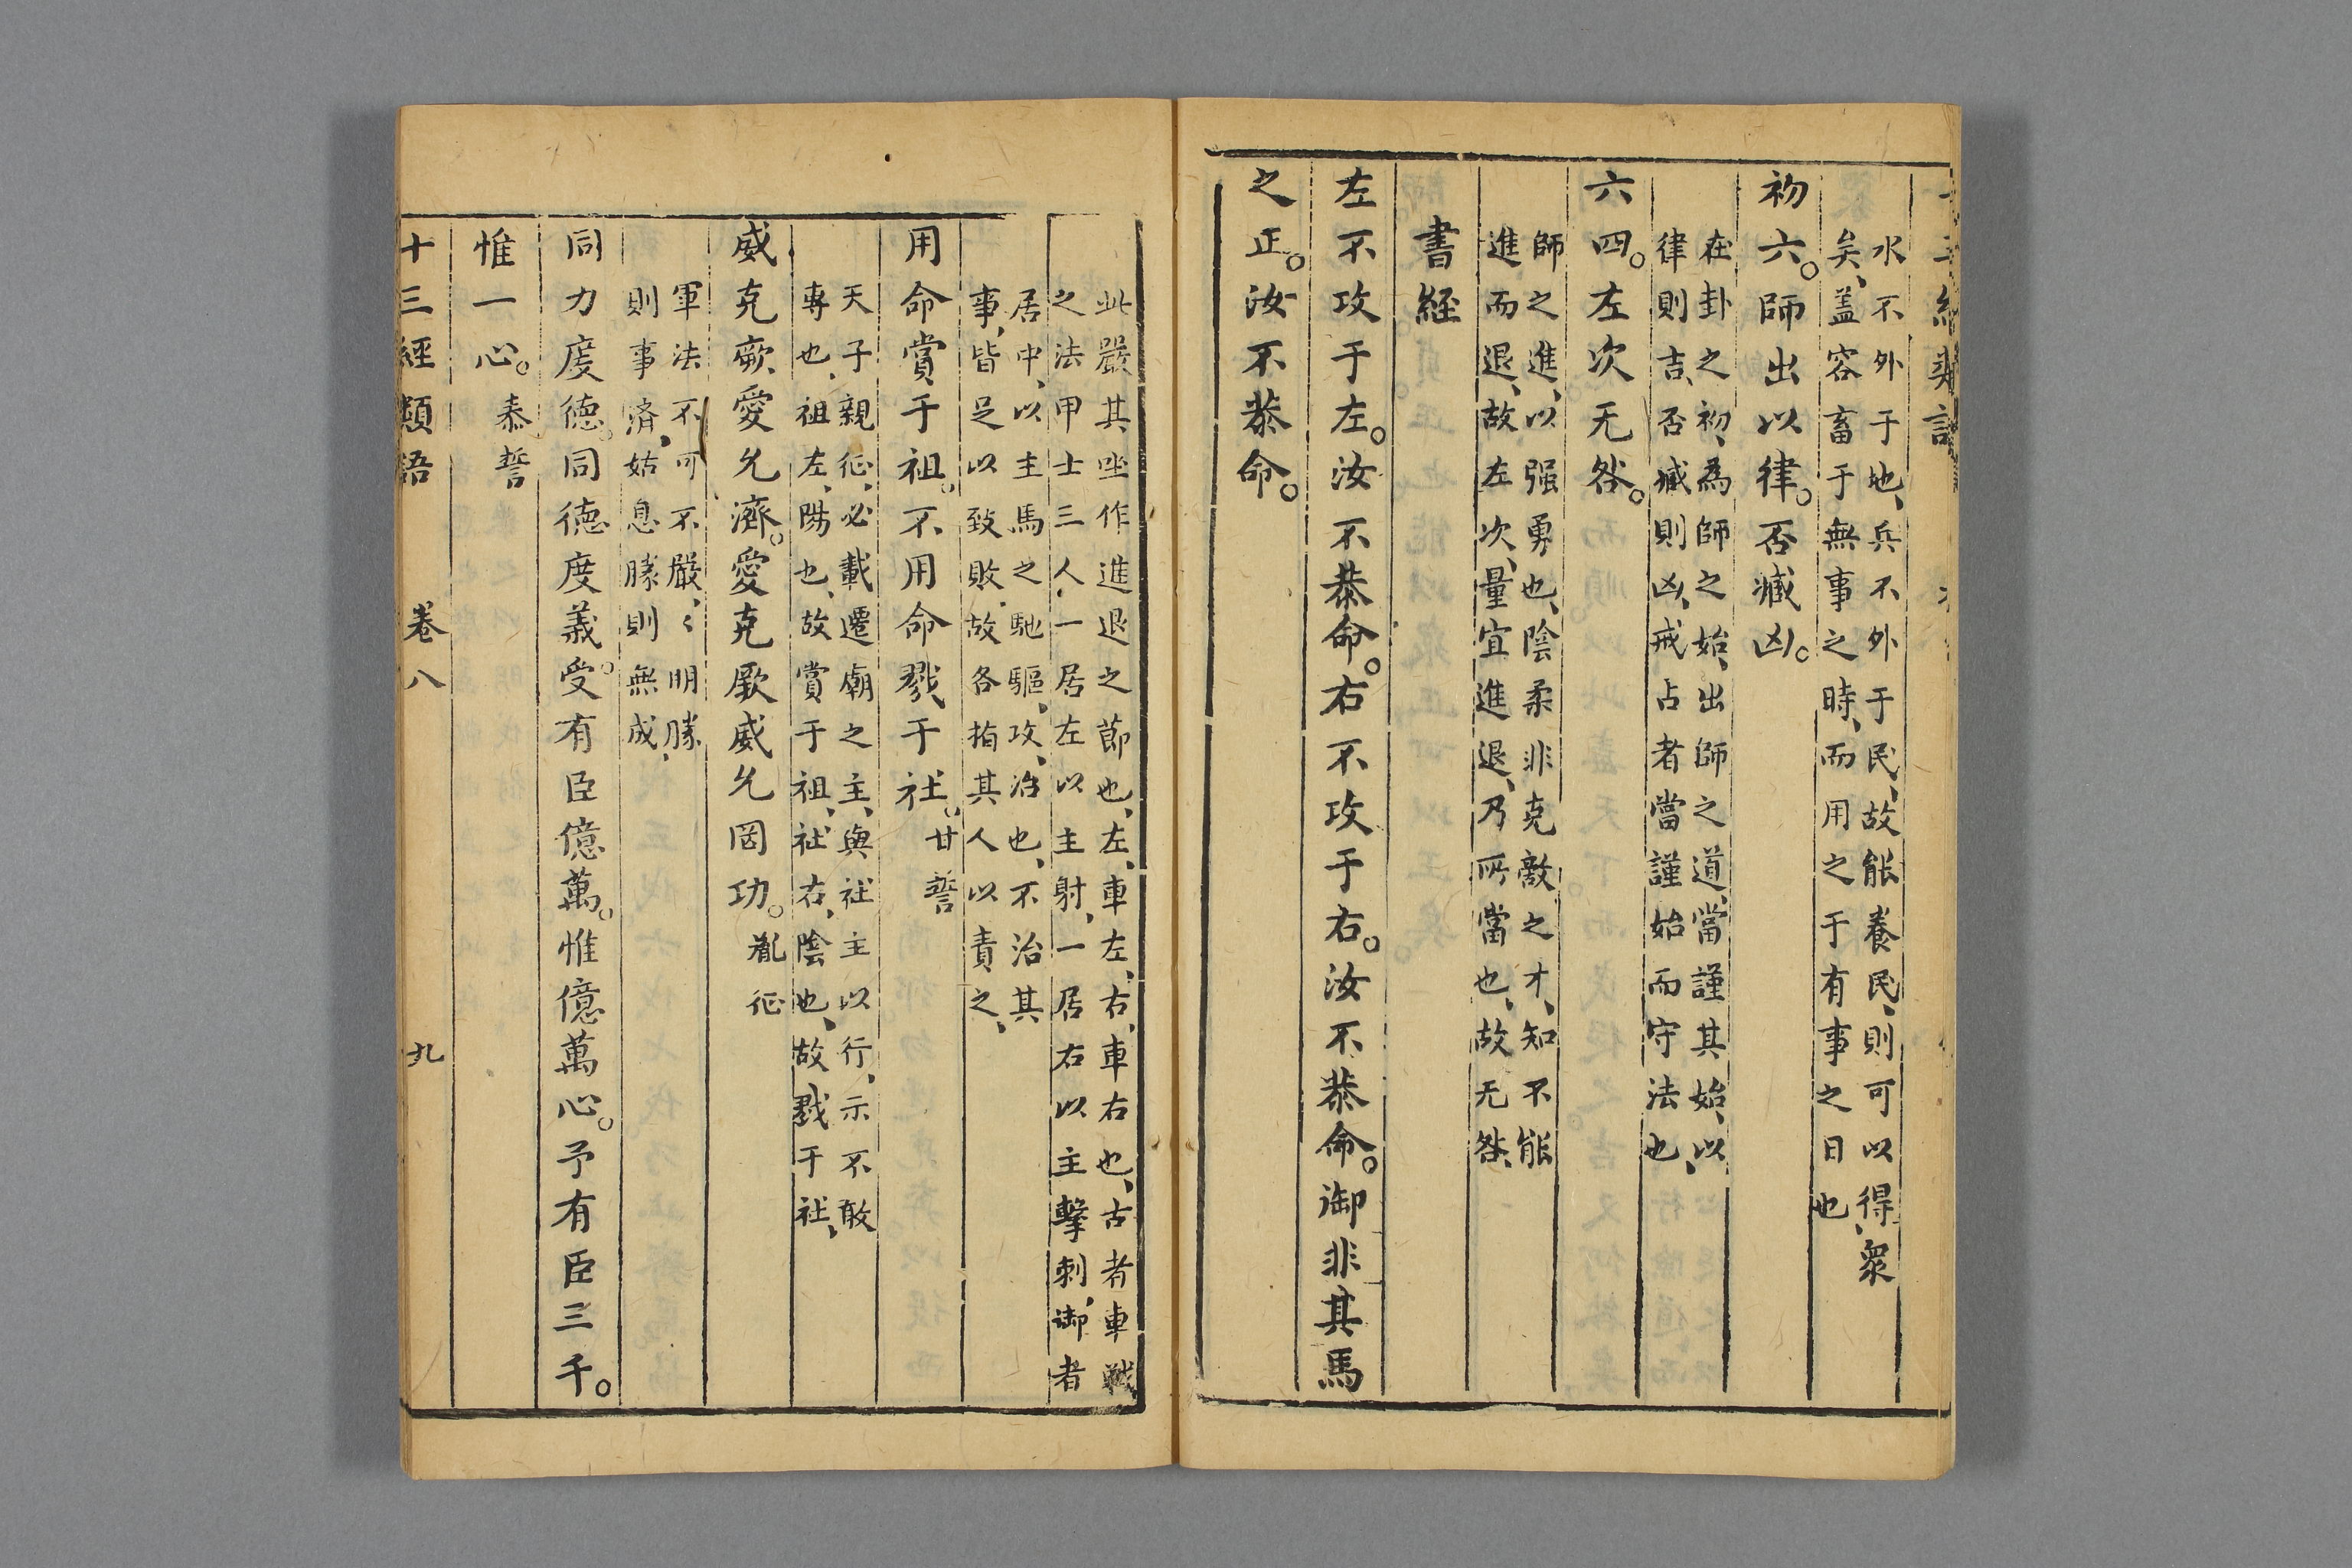 水不外于地、兵不外于民、故能養民、則可以得衆
矣、盖容畜于無事之時、而用之于有事之日也、
初六。師出以律。否臧凶。
在卦之初、為師之始、出師之道、當謹其始、以
律則吉、否臧則凶、戒占者當謹始而守法也、
六四。左次无咎。
師之進、以强勇也、陰柔非克敵之才、知不能
進而退、故左次、量宜進退、乃所當也、故无咎、
書経
左不攻于左。汝不恭命。右不攻于右。汝不恭命。御非其馬
之正。汝不恭命。
此嚴其坐作進退之節也、左、車左、右、車右也、古者車戰
之法甲士三人、一居左以主射、一居右以主擊刺、御者
居中、以主馬之馳驅、攻、治也、不治其
事、皆足以致敗、故各指其人以責之、
用命賞于祖。不用命戮于社。甘誓
天子親征、必載遷廟之主、與社主以行、示不敢
專也、祖左、陽也、故賞于祖、社右、陰也、故戮于社、
威克厥愛允濟。愛克厥威允罔功。胤征
軍法不可不嚴、〻明勝
則事濟、姑息勝則無成、
同力度德。同德度義。受有臣億萬。惟億萬心。予有臣三千。
惟一心。泰誓
十三經類語　卷八　九